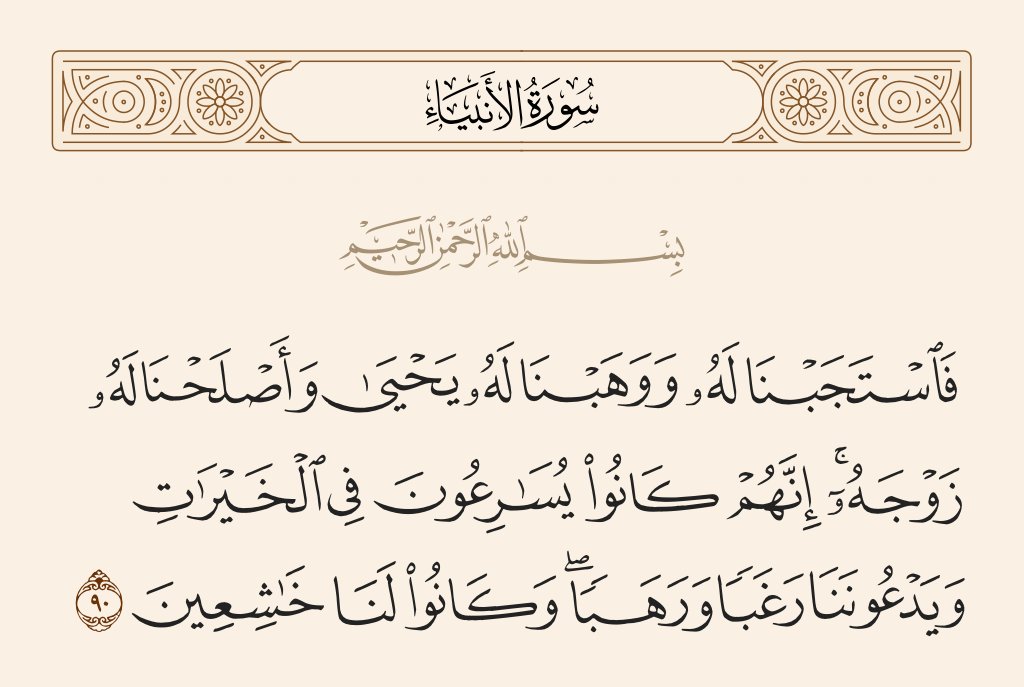 سُورَةُ الأَنبِيَاءِ
بِسْمِ ٱللَّهِ ٱلرَّحْمَٰنِ ٱلرَّحِيمِ
فَٱسْتَجَبْنَا لَهُۥ وَوَهَبْنَا لَهُۥ يَحْيَىٰ وَأَصْلَحْنَا لَهُۥ
زَوْجَهُۥٓ ۚ إِنَّهُمْ كَانُوا۟ يُسَٰرِعُونَ فِى ٱلْخَيْرَٰتِ
وَيَدْعُونَنَا رَغَبًا وَرَهَبًا ۖ وَكَانُوا۟ لَنَا خَٰشِعِينَ ٩٠